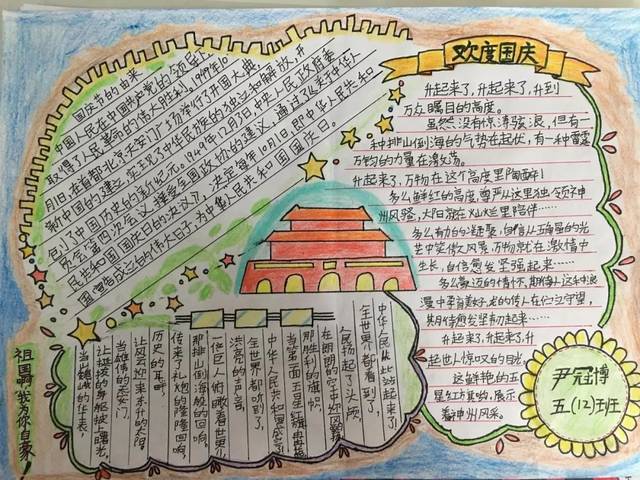 欢度国庆
国庆节的由来
中国人民在中国共产党的领导下
取得了人民革命的伟大胜利。1949年10
月1日,在首都北京天安门广场举行了开国大典,
新中国的建立,实现了中华民族的独立和解放,开
创了中国历史的新纪元。1949年12月2日,中央人民政府委
员会第四次会议接受全国政协的建议,通过了《关于中华人
民共和国国庆日的决议》,决定每年10月1日,即中华人民共和
国宣告成立的伟大日子,为中华人民共和国国庆日。
升起来了,升起来了,升到
万众瞩目的高度。
虽然没有惊涛骇浪,但有一
种排山倒海的气势在起伏,有一种雷霆
万钧的力量在激荡。
升起来了,万物在这个高度里陶醉!
多么鲜红的高度,尊严从这里独领神
州风骚,太阳就在灿烂里陪伴……
生长,自信愈发坚强起来……
升起来了,升起来了,升
起世人惊叹的目光
这鲜艳的五
星红旗哟,展示
着神州风采。
中华人民从此站起来了!
全世界都看到了,
人民扬起了头颅。
那胜利的旗帜,
在朗朗的空中迎风飘扬
当第一面五星红旗冉冉升起,
全世界都听到了,
洪亮的声音,
一位巨人俯瞰着世界,
那排山倒海般的回响。
传来了礼炮的隆隆回响,
历史的耳畔,
让风云迎来东升的太阳。
当雄伟的天安门,
让挺拔的身躯披上曙光,
当巍峨的华表,
祖国啊,我为你自豪!
尹冠博
五(12)班